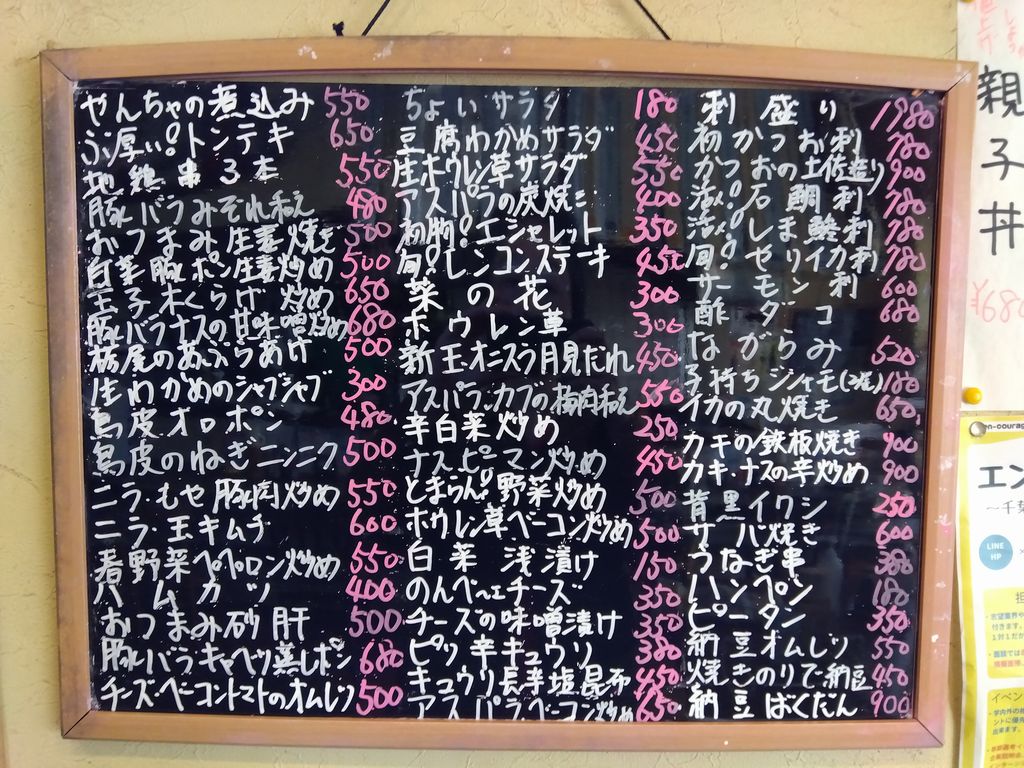 やんちゃの煮込み 550
ぶ厚い!トンテキ 650
地鶏串3本 550
豚バラみぞれ和え 480
おつまみ生姜焼き 500
白菜豚ポン生姜炒め 500
玉子木くらげ炒め 650
豚バラナスの甘味噌炒め 680
栃尾のあぶらあげ 500
生わかめのシャブシャブ 300
鳥皮オロポン 480
鳥皮のねぎニンニク 500
ニラ・もや豚肉炒め 550
ニラ・玉キムチ 600
春野菜ペペロン炒め 550
ハムカツ 400
おつまみ砂肝 500
豚バラキャベツ蒸しポン 680
チーズ・ベーコントマトのオムレツ 500
ちょいサラダ 180
豆腐わかめサラダ 450
生ホウレン草サラダ 550
アスパラの炭焼き 400
エシャレット 350
旬!レンコンステーキ 450
菜の花 300
ホウレン草 300
新玉オニスラ月見だれ 450
アスパラ・カブの梅肉和え 550
辛白菜炒め 250
ナスピーマン炒め 450
とまらん!野菜炒め 500
ホウレン草ベーコン炒め 500
白菜浅漬け 150
のんべーェチーズ 350
チーズの味噌漬け 350
ピリ辛キュウリ 380
キュウリ長芋塩昆布 450
アスパラ・ベーコン炒め 650
刺盛り 1980
初かつお刺 780
かつおの土佐造り 900
活!石鯛刺 780
活!しま鯵刺 780
旬!セリイカ刺 780
サーモン刺 600
酢ダコ 680
ながらみ 520
子持ちシシャモ(2尾) 180
イカの丸焼き 650
カキの鉄板焼き 900
カキ・ナスの辛炒め 900
背黒イワシ 250
サバ焼き 600
うなぎ串 380
ハンペン 180
ピータン 350
納豆オムレツ 550
焼きのりで納豆 450
納豆ばくだん 900
親子丼
¥680
en-courag
エン
～千葉
LINE
HP
イベン